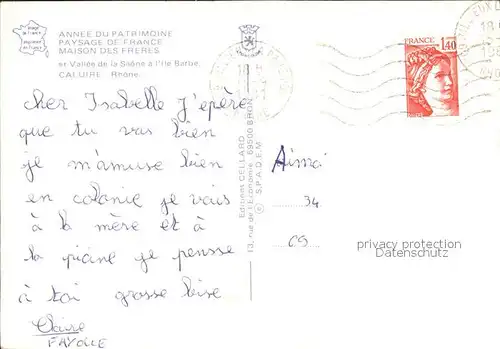 ANNÉE DU PATRIMOINE
PAYSAGE DE FRANCE
MAISON DES FRÈRES
et Vallée de la Saône à l'Ile Barbe.
CALUIRE - Rhône.
cher Isabelle j'epère
que tu vas bien
je m'amuse bien
en colonie je vais
à la mère et à
la picine je pensse
à toi grosse bise
Claire
FAYOLLE
Editions CELLARD
13, rue de l'Economie 69500 BRON
© S.P.A.D.E.M.
FRANCE
1,40
34
privacy protection
Datenschutz